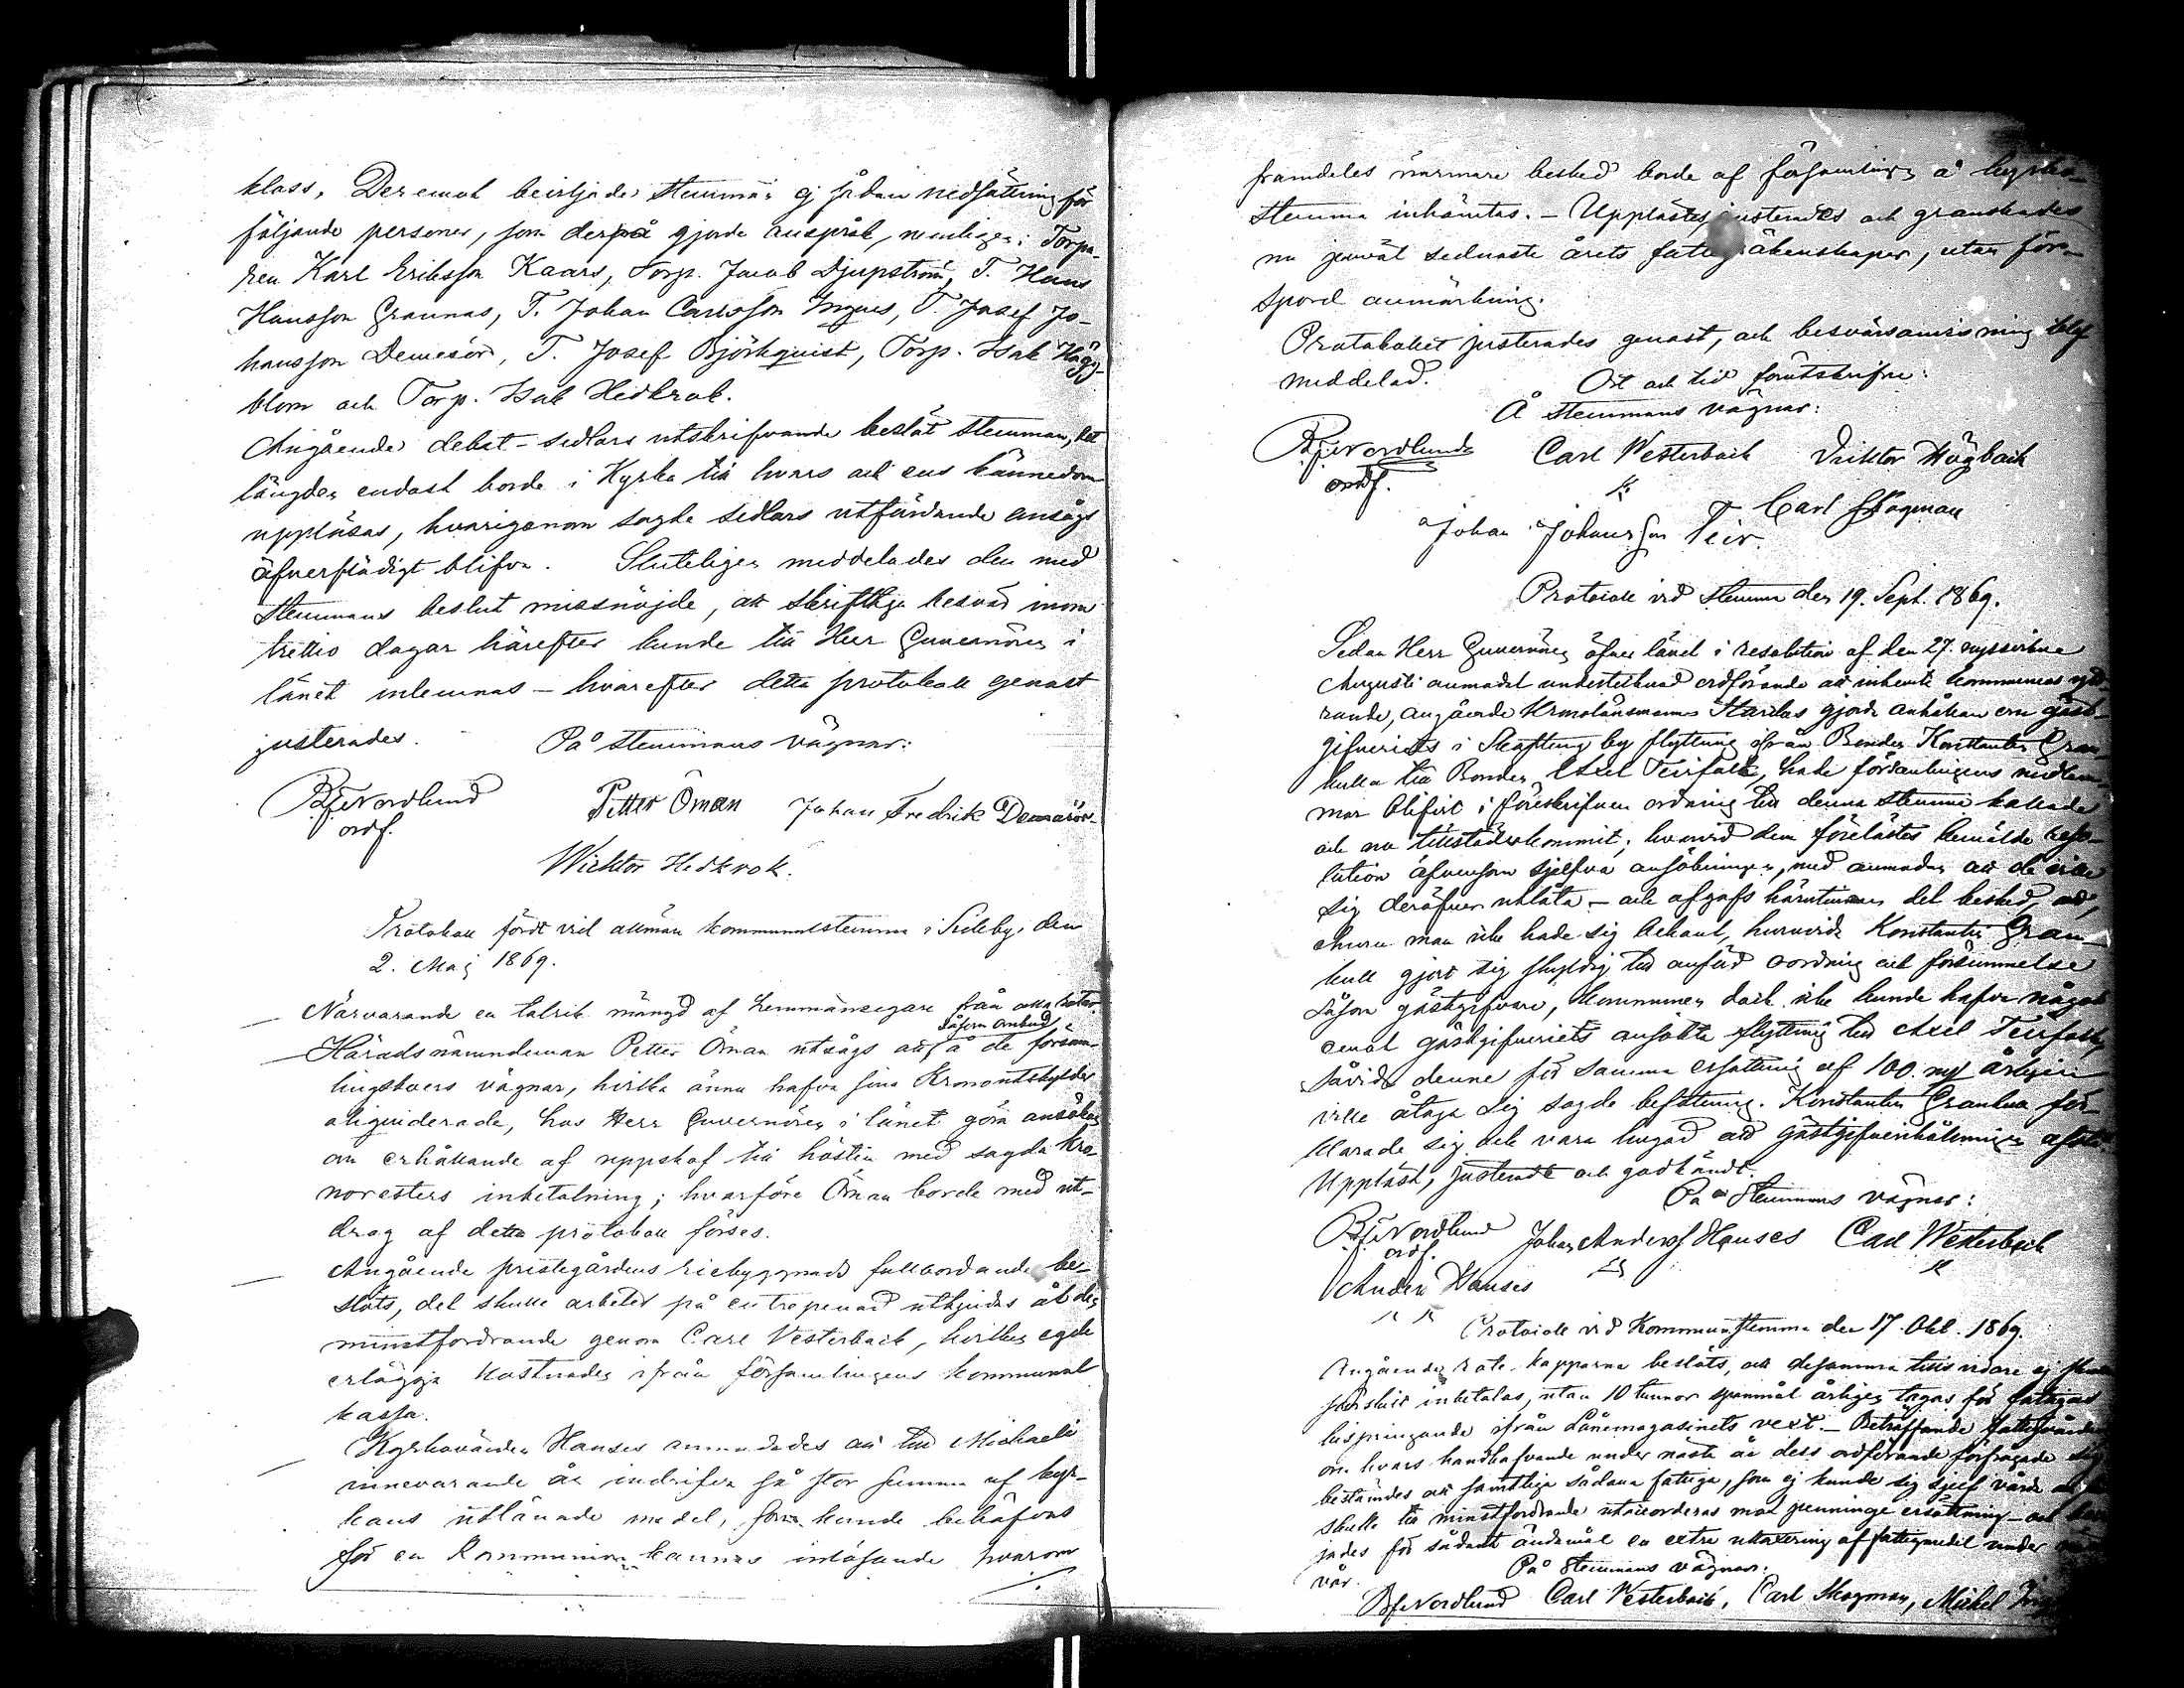 klass. Deremot beviljade stemman ej sådan nedsättning för
följande personer, som derpå gjorde anspråk, nemligen: Torpa-
ren Karl Eriksson Kaars, Torp. Jacob Djupström, T. Hans
Hansson Grannas, T. Johan Carlsson Ingves, T. Josef Jo-
hansson Demesör, T. Josef Björkquist, Torp. Isak Hägg-
blom och Torp. Isak Hedkrok.
Angående debet-sedlars utskrifvande beslöt stemman, att
längden endast borde i Kyrka till hvars och ens kännedom
uppläsas, hvarigenom sagde sedlars utfärdande ansågs
öfverflödigt blifva. Sluteligen meddelades den med
stemmans beslut missnöjde, att skriftliga besvär inom
trettio dagar härefter kunde till Herr Guvernören i
länet inlemnas – hvarefter detta protokoll genast
justerades. På stemmans vägnar:
Nordlund Petter Öman Johan Fredrik Demarör
ordf.
Wichtor Hedkrok.
Protokoll fördt vid allmän kommunalstemma i Sideby den
2. Maj 1869.
Närvarande en talrik mängd af hemmansegare från alla rotar.
såsom ombud
Häradsnämndeman Petter Öman utsågs att å de försam-
lingsboers vägnar, hvilka ännu hafva sina Kronoutskylder
oliqviderade, hos Herr Guvernören i länet göra ansökan
om erhållande af uppskof till hösten med sagda kro-
noresters inbetalning; hvarföre Öman borde med ut-
drag af detta protokoll förses.
Angående prestegårdens riebyggnads fullbordande be-
slöts, det skulle arbetet på entreprenad utbjudas åt den
minstfordrande genom Carl Westerback, hvilken egde
erlägga kostnaden ifrån församlingens kommunal
kassa.
Kyrkovärden Hanses anmodades att till Michaeli
innevarande år indrifva så stor summa af kyr-
kans utlånade medel, som kunde behöfvas
för en Kommunion kannas inlösande hvarom
framdeles närmare besked borde af församlingen å kyrko-
stemma inhämtas. – Upplästes, justerades och granskades
nu jemväl sednaste årets fattigräkenskaper, utan för-
spord anmärkning.
Protokollet justerades genast, och besvärsanvisning blef
meddelad. Ort och tid förutskrifne:
Å stemmans vägnar:
Nordlund Carl Westerback Vicktor Högback
ordf.
Johan Johansson Teir. Carl Skogman
Protokoll vid stemma den 19. Sept. 1869.
Sedan Herr Guvernören öfver länet i resolution af den 27. nyssvikne
Augusti anmodat undertecknad ordförande att inhemta kommunens ytt-
rande, angående Kronolänsmannen Starcks gjorde anhållan om gäst-
gifveriets i Skaftung by flyttning ifrån Bonden Konstantin Gran-
kulla till Bonden Axel Teirfolk, hade församlingens medlem-
mar blifvit i föreskrifven ordning till denna stemma kallade
och nu tillstädeskommit; hvarvid dem förelästes bemälde reso-
lution äfvensom sjelfva ansökningen, med anmodan att de ville
sig deröfver utlåta – och afgafs häruti det besked, att,
ehuru man icke hade sig bekant, huruvida Konstantin Gran-
kull gjort sig skyldig till anförd oordning och försummelse
såsom gästgifvare, Kommunen dock icke kunde hafva något
emot gästgifveriets ansökta flyttning till Axel Teirfolk,
såvida denne för samma ersättning af 100. årligen
ville åtaga sig sagde befattning. Konstantin Grankull för-
klarade sig ock vara hugad att gästgifverihållningen afstå.
Uppläst, justeradt och godkändt.
På Stemmans vägnar:
Nordlund Johan Andersf Hanses Carl Westerback
ordf.
Anders Hanses
Protokoll vid Kommunstemma den 17. Okt. 1869.
Angående rote-kapparna beslöts, att desamma tills vidare ej
särskilt inbetalas, utan 10 tunnor spanmål årligen tagas för fattigas
bespringande ifrån Lånemagasinets vext. – Beträffande fattigvården
om hvars handhafvande under nästa år dess ordförande förfrågade sig
bestämdes att samtliga sådana fattiga, som ej kunde sig sjelf vårda
skulle till minstfordrande utackorderas mot penninge ersättning – och
jades för sådant ändamål en extra uttaxering af fattigmedel under
vår.
På Stemmans vägnar:
Nordlund Carl Westerback, Carl Skogman, Mickel